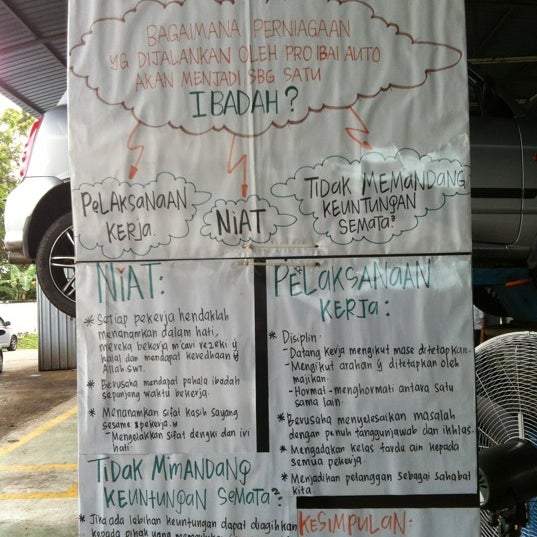 BAGAIMANA PERNIAGAAN
YG DIJALANKAN OLEH PRO IBAI AUTO
AKAN MENJADI SBG SATU
IBADAH?
PELAKSANAAN
KERJA.
NIAT
TIDAK MEMANDANG
KEUNTUNGAN
SEMATA²
NIAT:
* Setiap pekerja hendaklah
menanamkan dalam hati,
mereka bekerja m'cari rezeki yg
halal dan mendapat keredhaan yg
Allah SWT.
* Berusaha mendapat pahala ibadah
sepanjang waktu bekerja.
* Menanamkan sifat kasih sayang
sesama pekerja.
- Mengelakkan sifat dengki dan iri
hati.
PELAKSANAAN
KERJA:
* Disiplin:
- Datang kerja mengikut mase ditetapkan.
- Mengikut arahan yg ditetapkan oleh
majikan.
- Hormat-menghormati antara satu
sama lain.
* Berusaha menyelesaikan masalah
dengan penuh tanggungjawab dan ikhlas.
* Mengadakan kelas fardu ain kepada
semua pekerja.
* Menjadikan pelanggan sebagai sahabat
kita.
TIDAK MIMANDANG
KEUNTUNGAN SEMATA²
* Jika ada lebihan keuntungan dapat diagihkan
kepada pihak yang
KESIMPULAN: